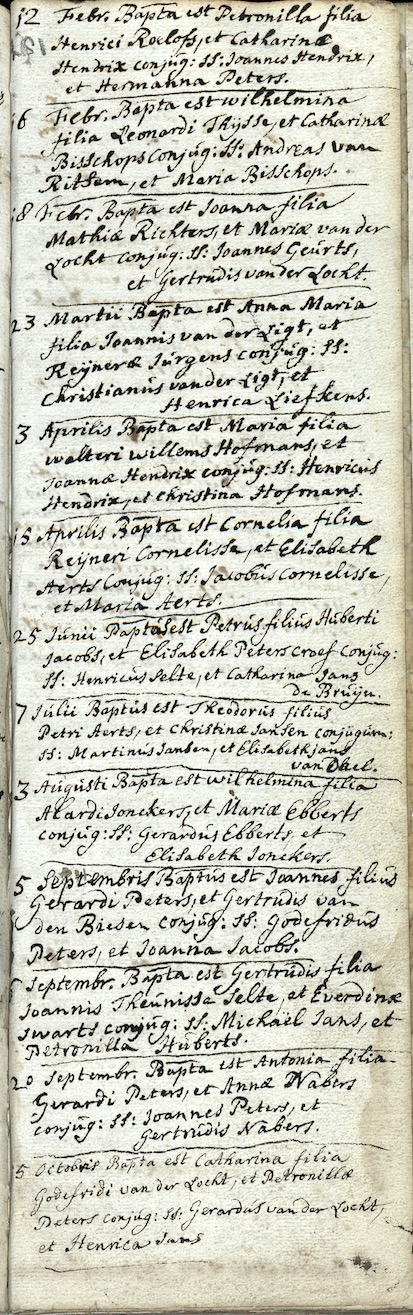 12 Febr. Bapta est Petronilla filia
Henrici Roelofs, et Catharinæ
Hendrix conjug: SS: Joannes Hendrix,
et Hermanna Peters.
6 Febr. Bapta est wilhelmina
filia Leonardi Thijsse, et Catharinæ
Bisschops conjug: SS: Andreas van
Rithem, et Maria Bisschops.
18 Febr. Bapta est Joanna filia
Mathiæ Richters, et Mariæ van der
Locht conjug: SS: Joannes Geurts,
et Gertrudis van der Locht.
23 Martii Bapta est Anna Maria
filia Joannis van der Ligt, et
Reijneræ Jurgens conjug: SS:
Christianus vander Ligt, et
Henrica Liefkens.
3 Aprilis Bapta est Maria filia
walteri willems Hofmans, et
Joannæ Hendrix conjug: SS: Henricus
Hendrix, et Christina Hofmans.
18 Aprilis Bapta est Cornelia filia
Reijneri Cornelisse, et Elisabeth
Aerts Conjug: SS: Jacobus Cornelisse,
et Maria Aerts.
25 Junii Baptus est Petrus filius Huberti
Jacobs, et Elisabeth Peters Croef conjug:
SS: Henricus Selte, et Catharina Jans
de Bruijn.
7 Julii Baptus est Theodorus filius
Petri Aerts, et Christinæ Jansen conjugum:
SS: Martinus Jansen, et Elisabeth jans
van Dael.
3 Augusti Bapta est wilhelmina filia
Alardi Jonckers, et Mariæ Ebberts
conjug: SS: Gerardus Ebberts, et
Elisabeth Jonckers.
5 Septembris Baptus est Joannes filius
Gerardi Peters, et Gertrudis van
den Biesen conjug: SS: Godefridus
Peters, et Joanna Jacobs.
Septembr. Bapta est Gertrudis filia
Joannis Theunisse Selte, et Everdinæ
swarts conjug: SS: Michaël Jans, et
Petronilla Huberts.
20 Septembr. Bapta est Antonia filia
Gerardi Peters, et Annæ Nabers
conjug: SS: Joannes Peters, et
Gertrudis Nabers.
5 Octobris Bapta est Catharina filia
Godefridi van der Locht, et Petronillæ
Peters conjug: SS: Gerardus van der Locht,
et Henrica Jans